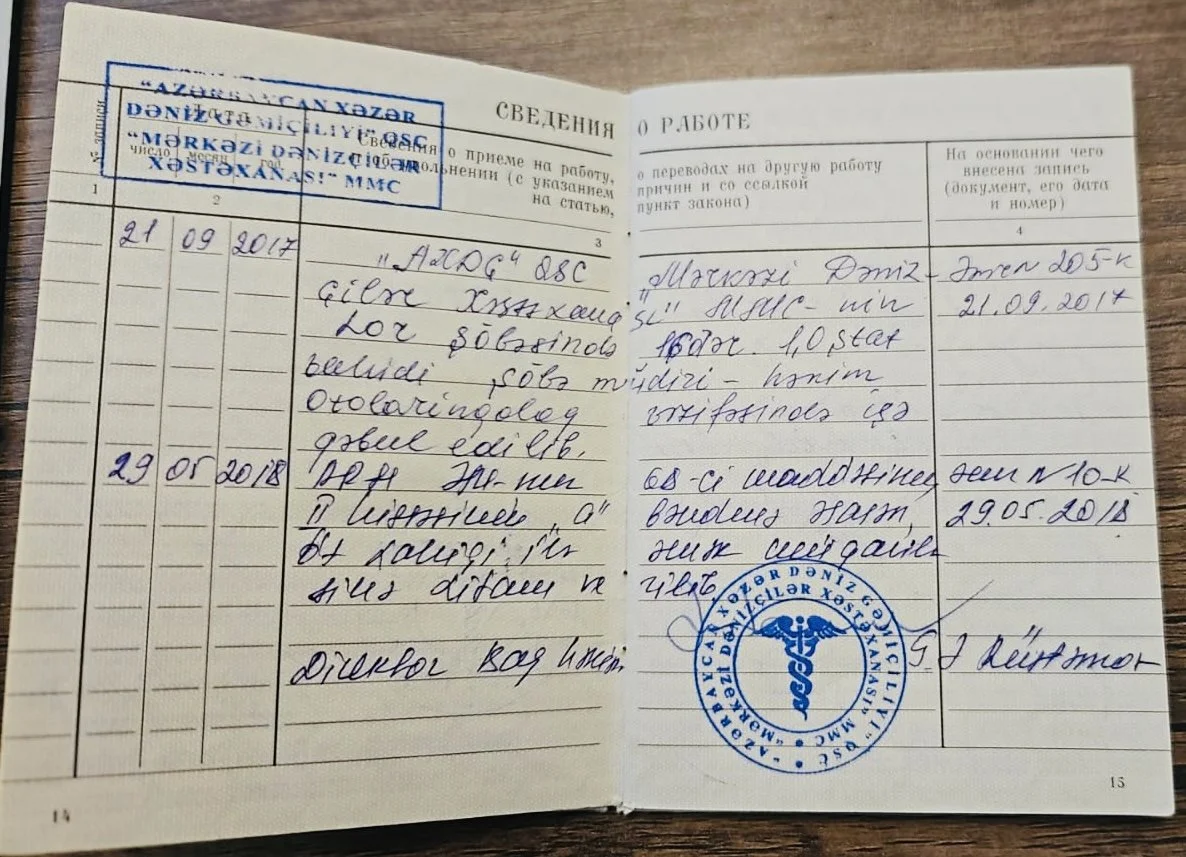 "AZƏRBAYCAN XƏZƏR
DƏNİZ GƏMİÇİLİYİ" QSC
"MƏRKƏZİ DƏNİZÇİLƏR
XƏSTƏXANASI" MMC
СВЕДЕНИЯ О РАБОТЕ
№ записи
Дата
число месяц год
Сведения о приеме на работу, о переводах на другую работу
и об увольнении (с указанием причин и со ссылкой
на статью, пункт закона)
На основании чего
внесена запись
(документ, его дата
и номер)
1 2 3 4
21 09 2017 "AXDG" QSC "Mərkəzi Dəniz- Əmr N 205-K
çilər Xəstəxanası" MMC-nin 21.09.2017
Lor şöbəsində 1,0 ştat
vahidi şöbə müdiri - həkim
Otolarinqoloq vəzifəsinə işə
qəbul edilib.
29 05 2018 68-ci maddəsinin Əmr N 10-K
II hissəsinin "a" bəndinə əsasən, 29.05.2018
öz əmək
xitam verilib.
Direktor Baş həkim
"AZƏRBAYCAN XƏZƏR DƏNİZ GƏMİÇİLİYİ" QSC
"MƏRKƏZİ DƏNİZÇİLƏR XƏSTƏXANASI" MMC
14
15